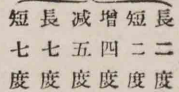 長二度
短二度
增四度
減五度
長七度
短七度